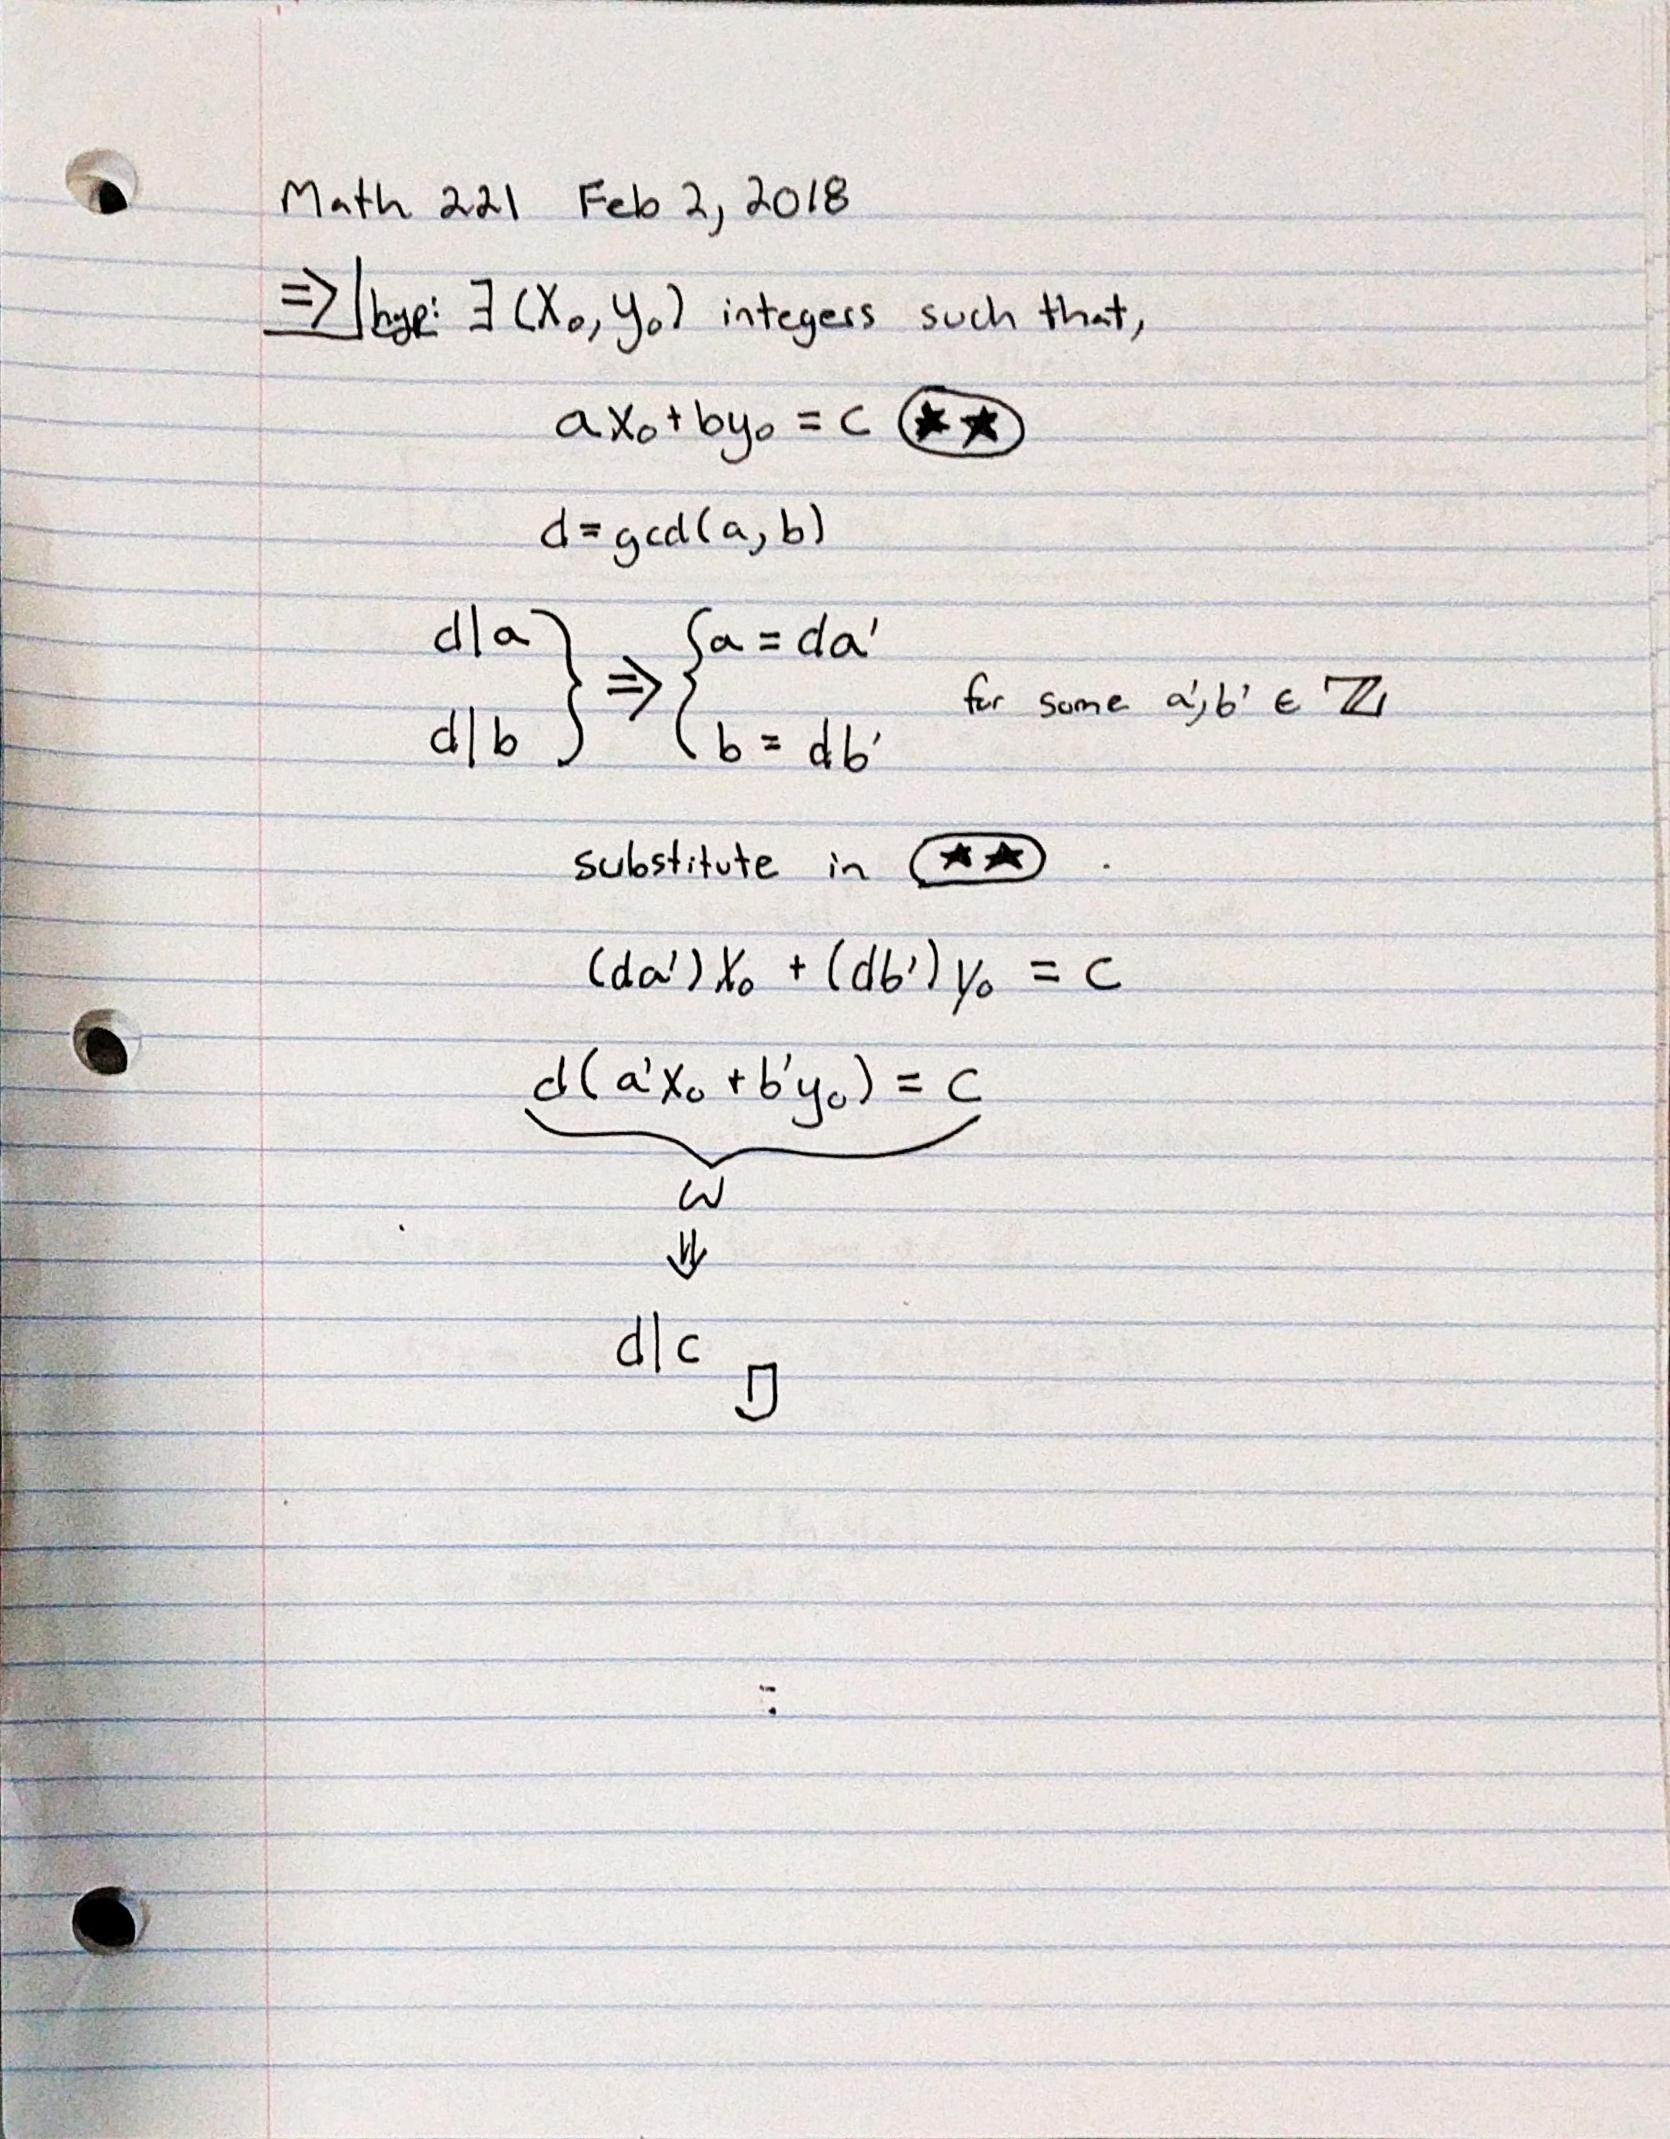 Math 221 Feb 2, 2018
⇒| hyp: ∃ (x₀, y₀) integers such that,
ax₀ + by₀ = c (★★)
d = gcd(a, b)
d|a } ⇒ { a = da'
for some a', b' ∈ ℤ
d|b } { b = db'
substitute in (★★) .
(da')x₀ + (db')y₀ = c
d(a'x₀ + b'y₀) = c
w
⇓
d|c □